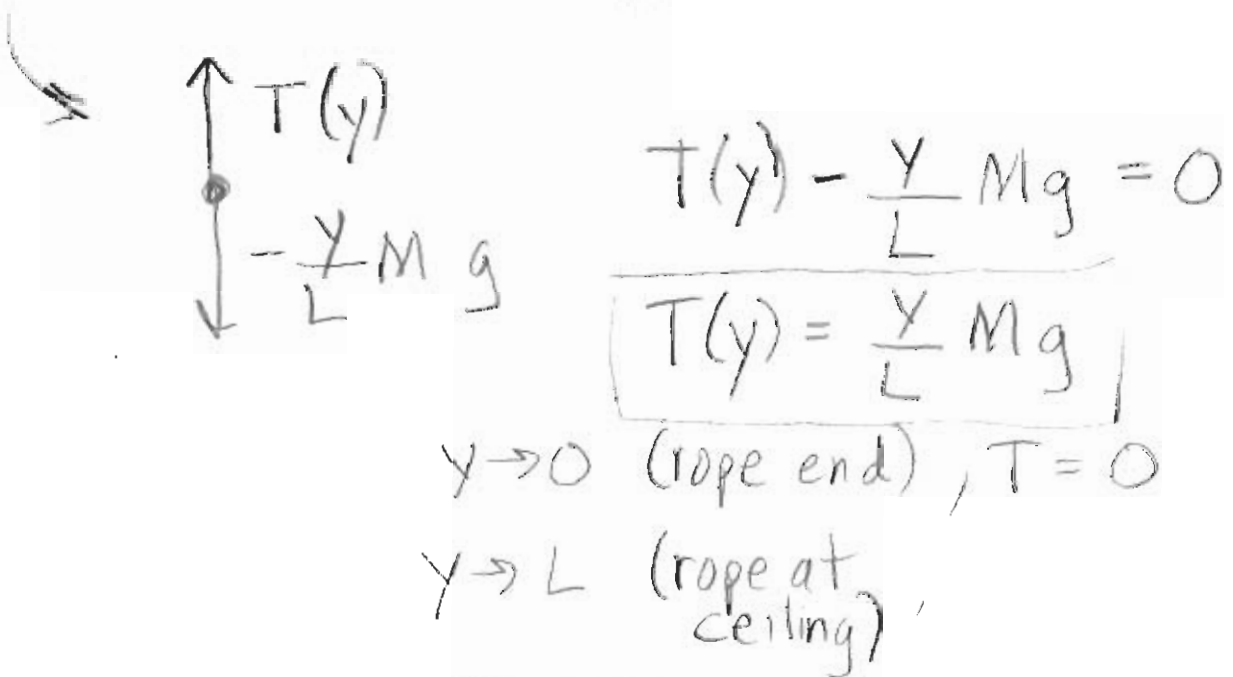 T(y)
- y/L M g
T(y) - y/L Mg = 0
T(y) = y/L Mg
y → 0 (rope end), T = 0
y → L (rope at
ceiling),